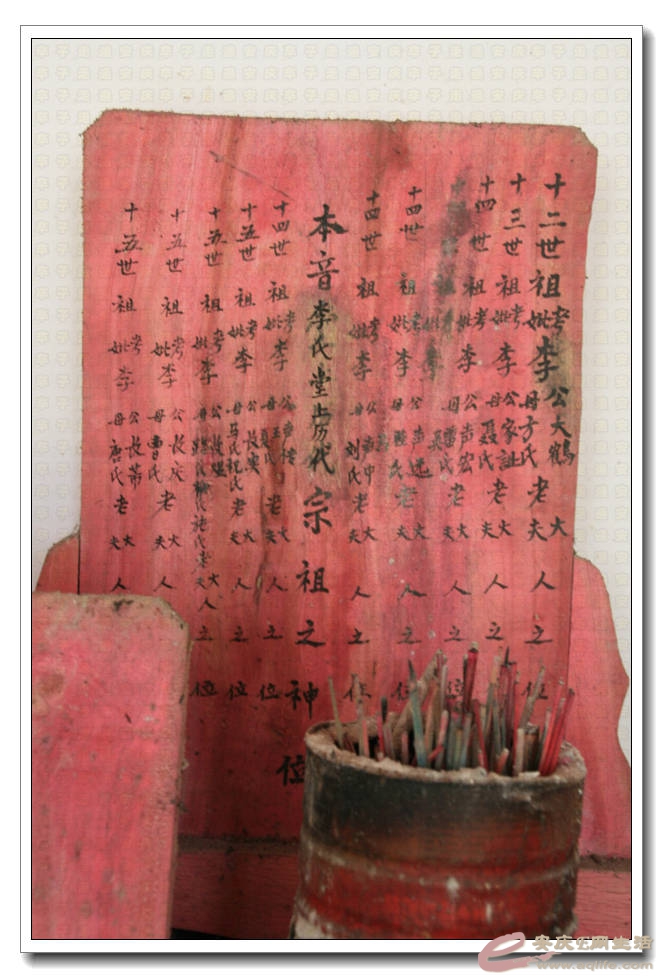 十二世祖考妣李公大鶴母方氏老大夫人之位
十三世祖考妣李公家母聂氏老大夫人之位
十四世祖考妣李公声宏母氏老大夫人之位
十四世祖考妣李公声远母氏老大夫人之位
十四世祖考妣李公声中刘氏老大夫人之位
本音李氏堂上历代宗祖之神位
十四世祖考妣李公声母王氏老大夫人之位
十五世祖考妣李公长母马氏祝氏老大夫人之位
十五世祖考妣李公长母氏氏施氏老大夫人之位
十五世祖考妣李公长庆母曹氏老大夫人
十五世祖考妣李公长母唐氏老大夫人
安庆E网生活
www.aqlife.com